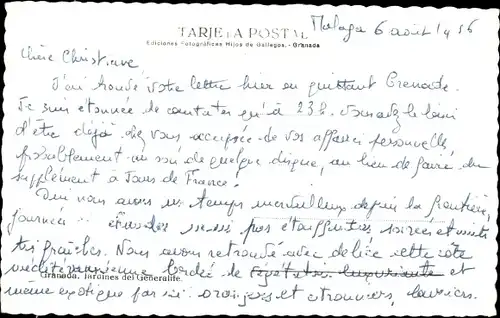 TARJETA POSTAL
Ediciones Fotográficas Hijos de Gallegos. - Granada
Malaga 6 août 1956
Chère Christiane
J'ai trouvé votre lettre hier en quittant Grenade.
Je suis étonnée de constater qu'à 23h. vous avez le loisir
d'être déjà chez vous occupée de vos affaires personnelles,
probablement au son de quelque disque, au lieu de faire du
supplément à Tours de France!
Oui nous avons un temps merveilleux depuis la frontière,
journées chaudes mais pas étouffantes, soirées et nuits
très fraîches. Nous avons retrouvé avec délice cette côte
méditerranéenne bordée de végétation luxuriante et
Granada. Jardines del Generalife.
même exotique par ici: orangers et citronniers, lauriers.